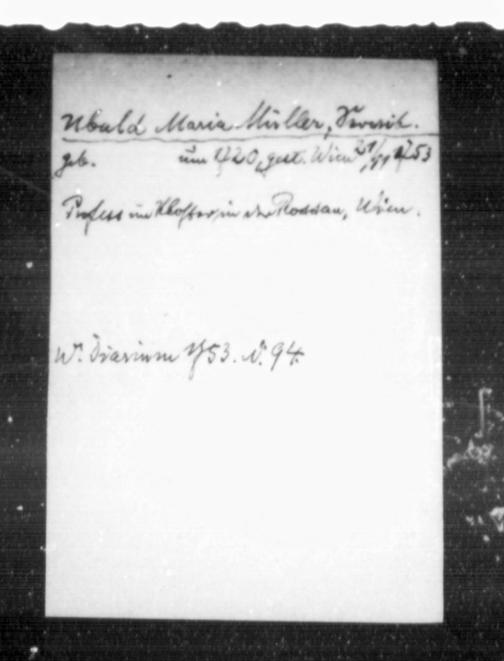 Ubald Maria Müller, Servit.
geb. um 1720, gest. Wien 21/11 1753
Profess im Kloster in der Rossau, Wien.
W. Diarium 1753. N. 94.